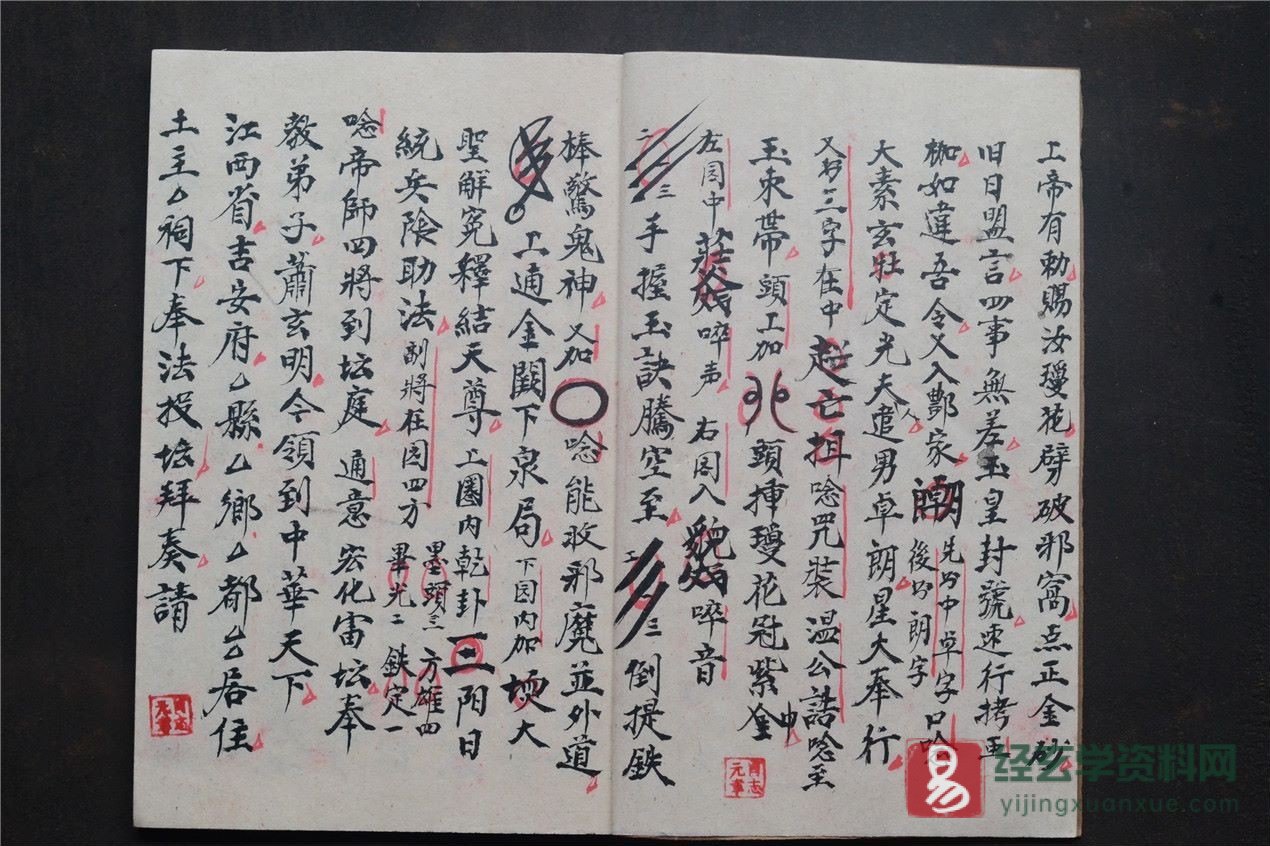 工帝有勅賜汝瓊花劈破邪窩点正金砂
旧日盟言四事無差玉皇封號速行拷
枷如違吾令又入酆家 朗 先书中卓字口唸 後书朗字
大素玄牡定光夫追男卓朗星大奉行
又书三字在中 趙亡拑 唸咒裝温公誥唸至
玉束帶頭工加 頭挿瓊花冠紫金
左圈中 啐声 右圈入 啐音
二一三手握玉訣騰空至 三倒提鉄
棒驚鬼神又加〇唸能收邪魔並外道
工通金闕下泉局下圆内加 大
聖解冤釋結天尊上圈内乾卦三阳日
統兵陰助法副將在圆四方 墨頭三 方雄四 畢光二 鉄定一
唸帝師四將到坛庭通意宏化雷坛奉
教弟子蕭玄明今領到中華天下
江西省吉安府厶縣厶鄉厶都厶居住
土主厶祠下奉法投坛拜奏請
肖志元章
肖志元章
易
经玄学资料网
yijingxuanxue.com